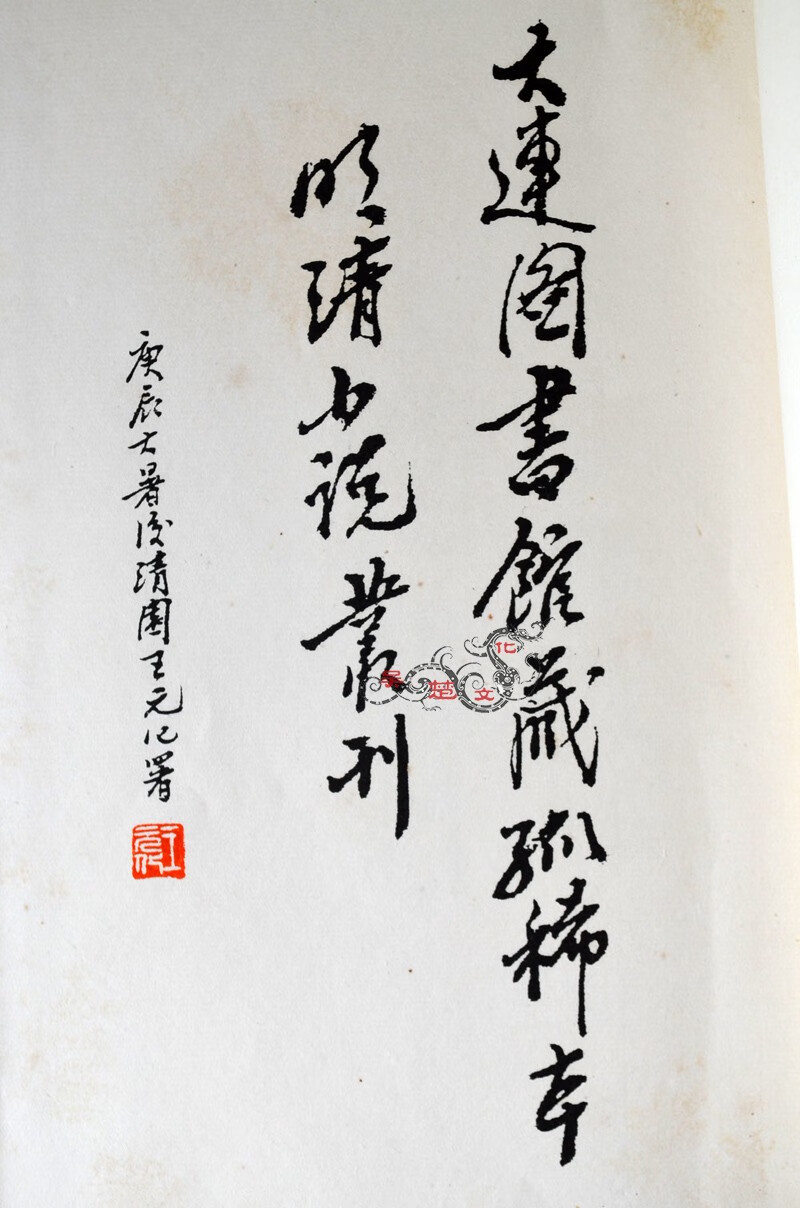 大連图書館藏孤稀本
明清小说叢刊
庚辰大暑後清園王元化署
吴楚文化